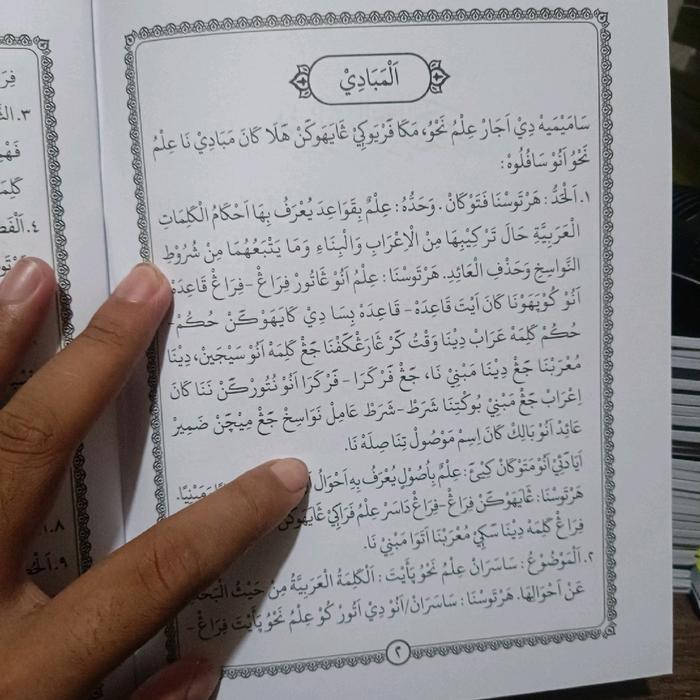 اَلْمَبَادِيْ
سَامَيْمَيهْ دِيْ اَجَارْ عِلْمُ نَحْوُ، مَكَا فَرْيَوْكِيْ ڠَايَهَوكَنْ هَلَا كَانَ مَبَادِيْ نَا عِلْمُ
نَحْوُ اَنُوْ سَافُلُوْهْ:
١. اَلْحَدُّ: هَرْتَوسْنَا فَتَوكَانْ. وَحَدُّهُ: عِلْمٌ بِقَوَاعِدَ يُعْرَفُ بِهَا اَحْكَامُ الْكَلِمَاتِ
الْعَرَبِيَّةِ حَالَ تَرْكِيْبِهَا مِنَ الْاِعْرَابِ وَالْبِنَاءِ وَمَا يَتْبَعُهُمَا مِنْ شُرُوْطِ
النَّوَاسِخِ وَحَذْفِ الْعَائِدِ. هَرْتَوسْنَا: عِلْمُ اَنُوْ ڠَاتُورْ فِرَاڠْ-فِرَاڠْ قَاعِدَهْ
اَنُوْ كُوْ يَهَوْنَا كَانَ اَيْتَ قَاعِدَهْ-قَاعِدَهْ بِسَا دِيْ كَايَهَوكَنْ حُكُمْ-
حُكُمْ كَلِمَهْ عَرَابْ دِيْنَا وَقْتُ كَرْ ڠَارَڠْكَفْنَا جَڠْ كَلِمَهْ اَنُوْ سَيْجَيْنْ، دِيْنَا
مُعْرَبْنَا جَڠْ دِيْنَا مَبْنِيْ نَا، جَڠْ فَرْكَرَا-فَرْكَرَا اَنُوْ نُتُوْرَكَنْ نَنَا كَانَ
اِعْرَابْ جَڠْ مَبْنِيْ بُوكْتِنَا شَرَطْ-شَرَطْ عَامِلْ نَوَاسِخْ جَڠْ مِيْچَنْ ضَمِيْر
عَائِدْ اَنُوْ بَالِكْ كَانَ اِسِمْ مَوْصُولْ تِنَا صِلَهْ نَا.
اَيَادَيْئْ اَنُوْ مَتَوْكَانْ كِيَئْ: عِلْمٌ بِأُصُولٍ يُعْرَفُ بِهِ اَحْوَالُ وَمَبْنِيًّا.
هَرْتَوسْنَا: ڠَايَهَوكَنْ فِرَاڠْ-فِرَاڠْ دَاسَرْ عِلْمُ فَرَاكِيْ ڠَايَهَوكَنْ
فِرَاڠْ كَلِمَهْ دِيْنَا سَكِيْ مُعْرَبْنَا اَتَوَا مَبْنِيْ نَا.
٢. اَلْمَوْضُوْعُ: سَاسَرَانْ عِلْمُ نَحْوُ يَأَيْتَ: اَلْكَلِمَةُ الْعَرَبِيَّةُ مِنْ حَيْثُ الْبَحْثِ
عَنْ اَحْوَالِهَا. هَرْتَوسْنَا: سَاسَرَانْ/اَنُوْ دِيْ اَتُوْرْ كُوْ عِلْمُ نَحْوُ يَأَيْتَ فِرَاڠْ-
٢
فِرَا
٣. الثَّ
فَهْ
كَلِمَ
٤. اَلْفَضْ
٨. ا
٩. اَلْحُ